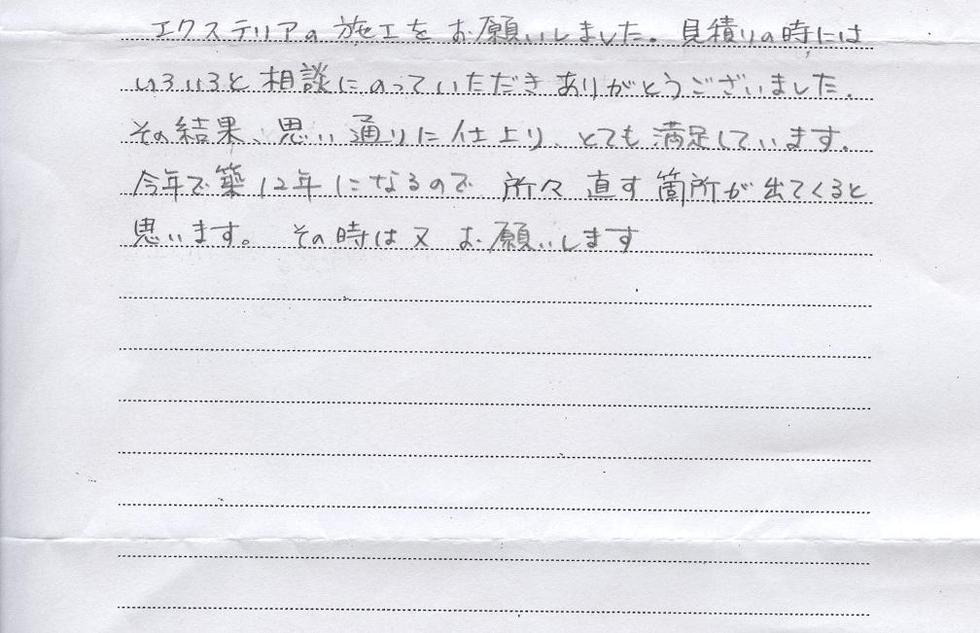 エクステリアの施工をお願いしました。見積りの時には
いろいろと相談にのっていただきありがとうございました。
その結果、思い通りに仕上り、とても満足しています。
今年で築12年になるので 所々 直す箇所が出てくると
思います。 その時は又 お願いします